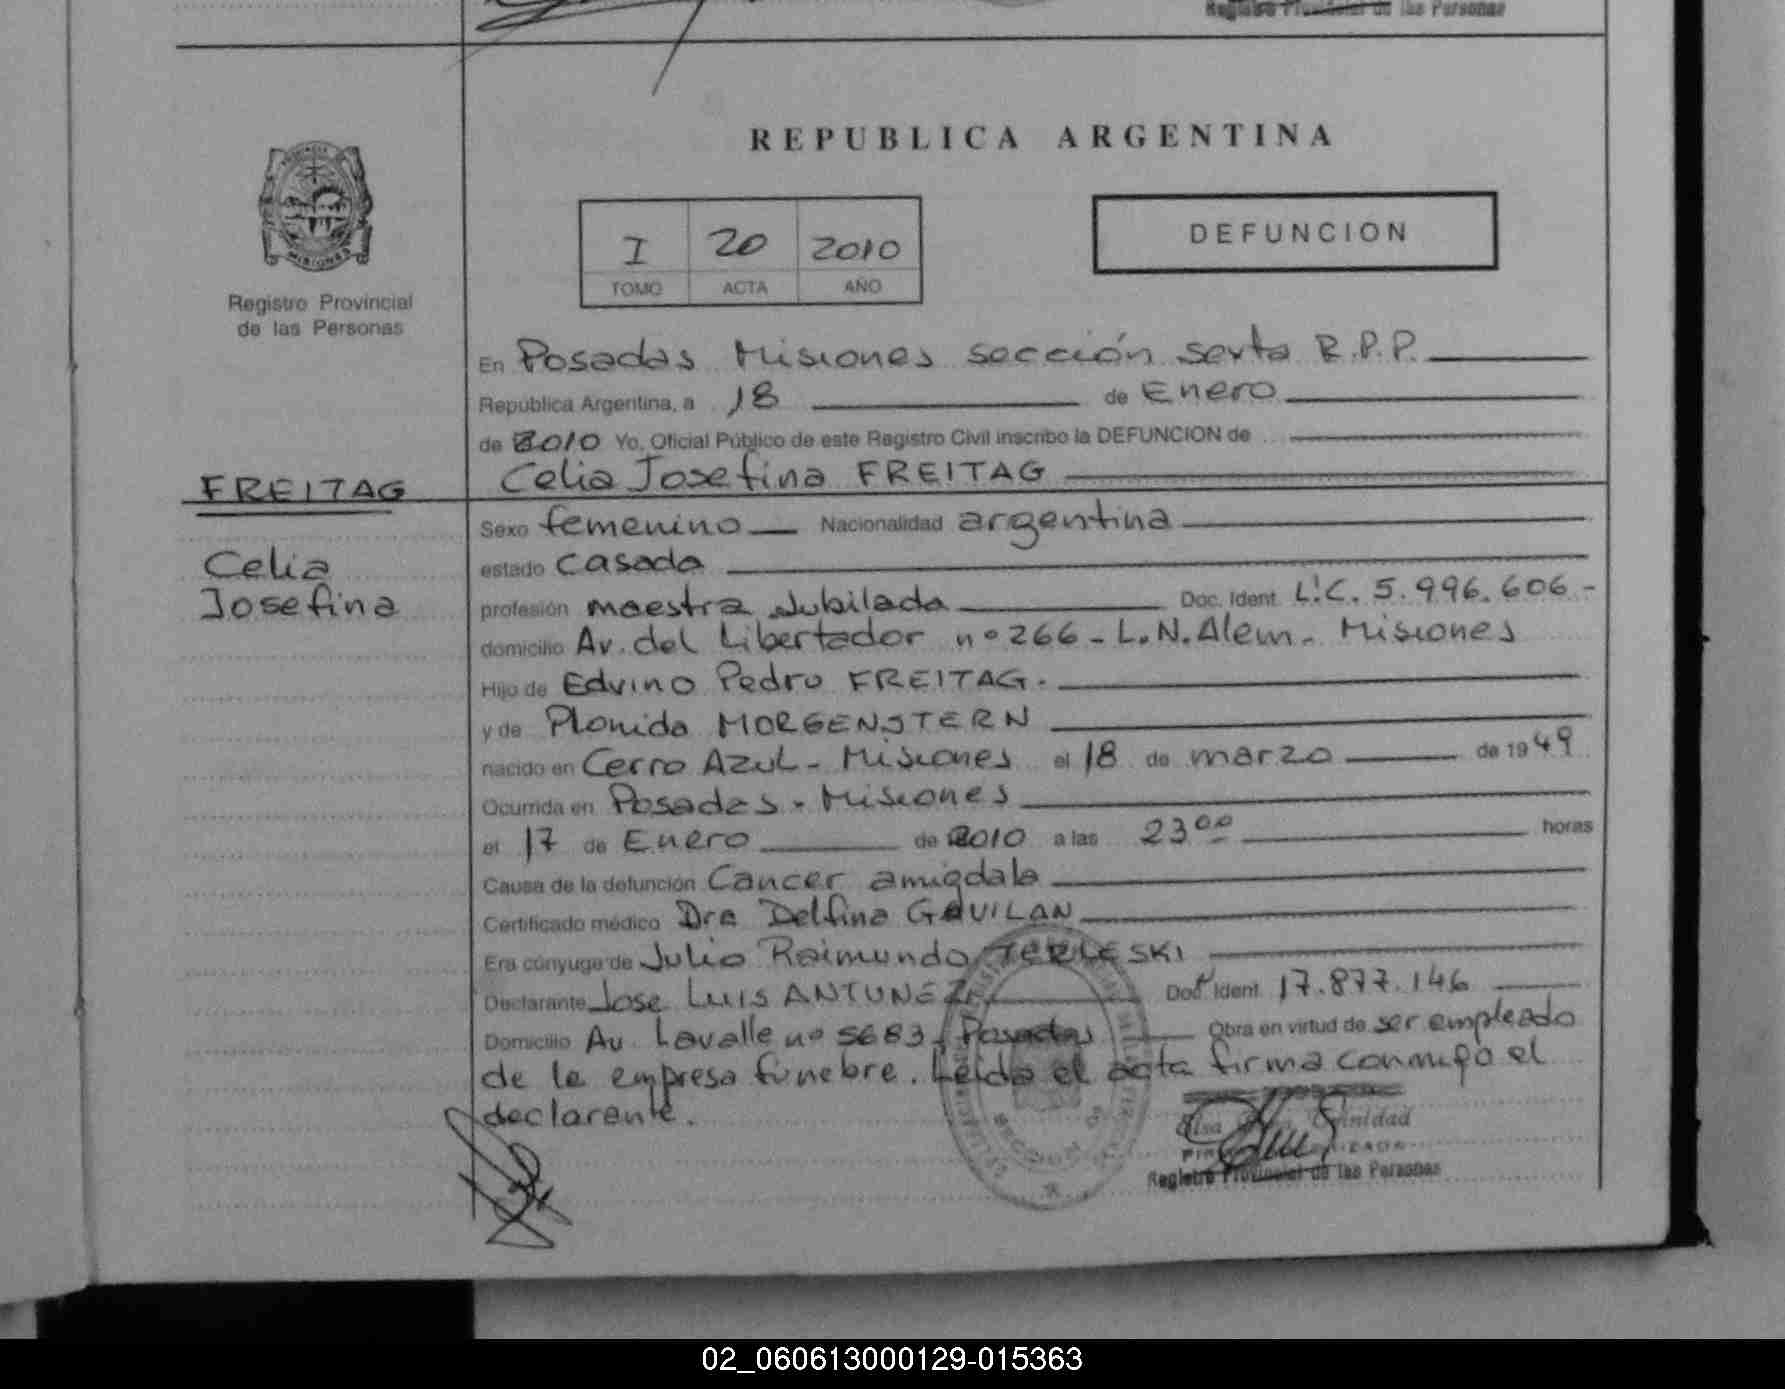 Registro Provincial de las Personas
REPUBLICA ARGENTINA
I 20 2010
TOMO ACTA AÑO
DEFUNCION
PROVINCIA
MISIONES
Registro Provincial
de las Personas
En Posadas Misiones sección sexta R.P.P.
República Argentina, a 18 de Enero
de 2010 Yo, Oficial Público de este Registro Civil inscribo la DEFUNCION de
Celia Josefina FREITAG
FREITAG
Celia
Josefina
Sexo femenino Nacionalidad argentina
estado casada
profesión maestra jubilada Doc. Ident. L.C. 5.996.606.-
domicilio Av. del Libertador nº 266 - L.N. Alem - Misiones
Hijo de Edvino Pedro FREITAG.
y de Plonida MORGENSTERN
nacido en Cerro Azul - Misiones el 18 de marzo de 1949
Ocurrida en Posadas - Misiones
el 17 de Enero de 2010 a las 23ºº horas
Causa de la defunción Cancer amigdala
Certificado médico Dra Delfina GAVILAN
Era cónyuge de Julio Raimundo TERLESKI
Declarante Jose Luis ANTUNEZ Doc. Ident. 17.877.146
Domicilio Av. Lavalle nº 5683, Posadas Obra en virtud de ser empleado
de la empresa fúnebre. Leída el acta firma conmigo el
declarante.
Elsa Trinidad
Registro Provincial de las Personas
02_060613000129-015363